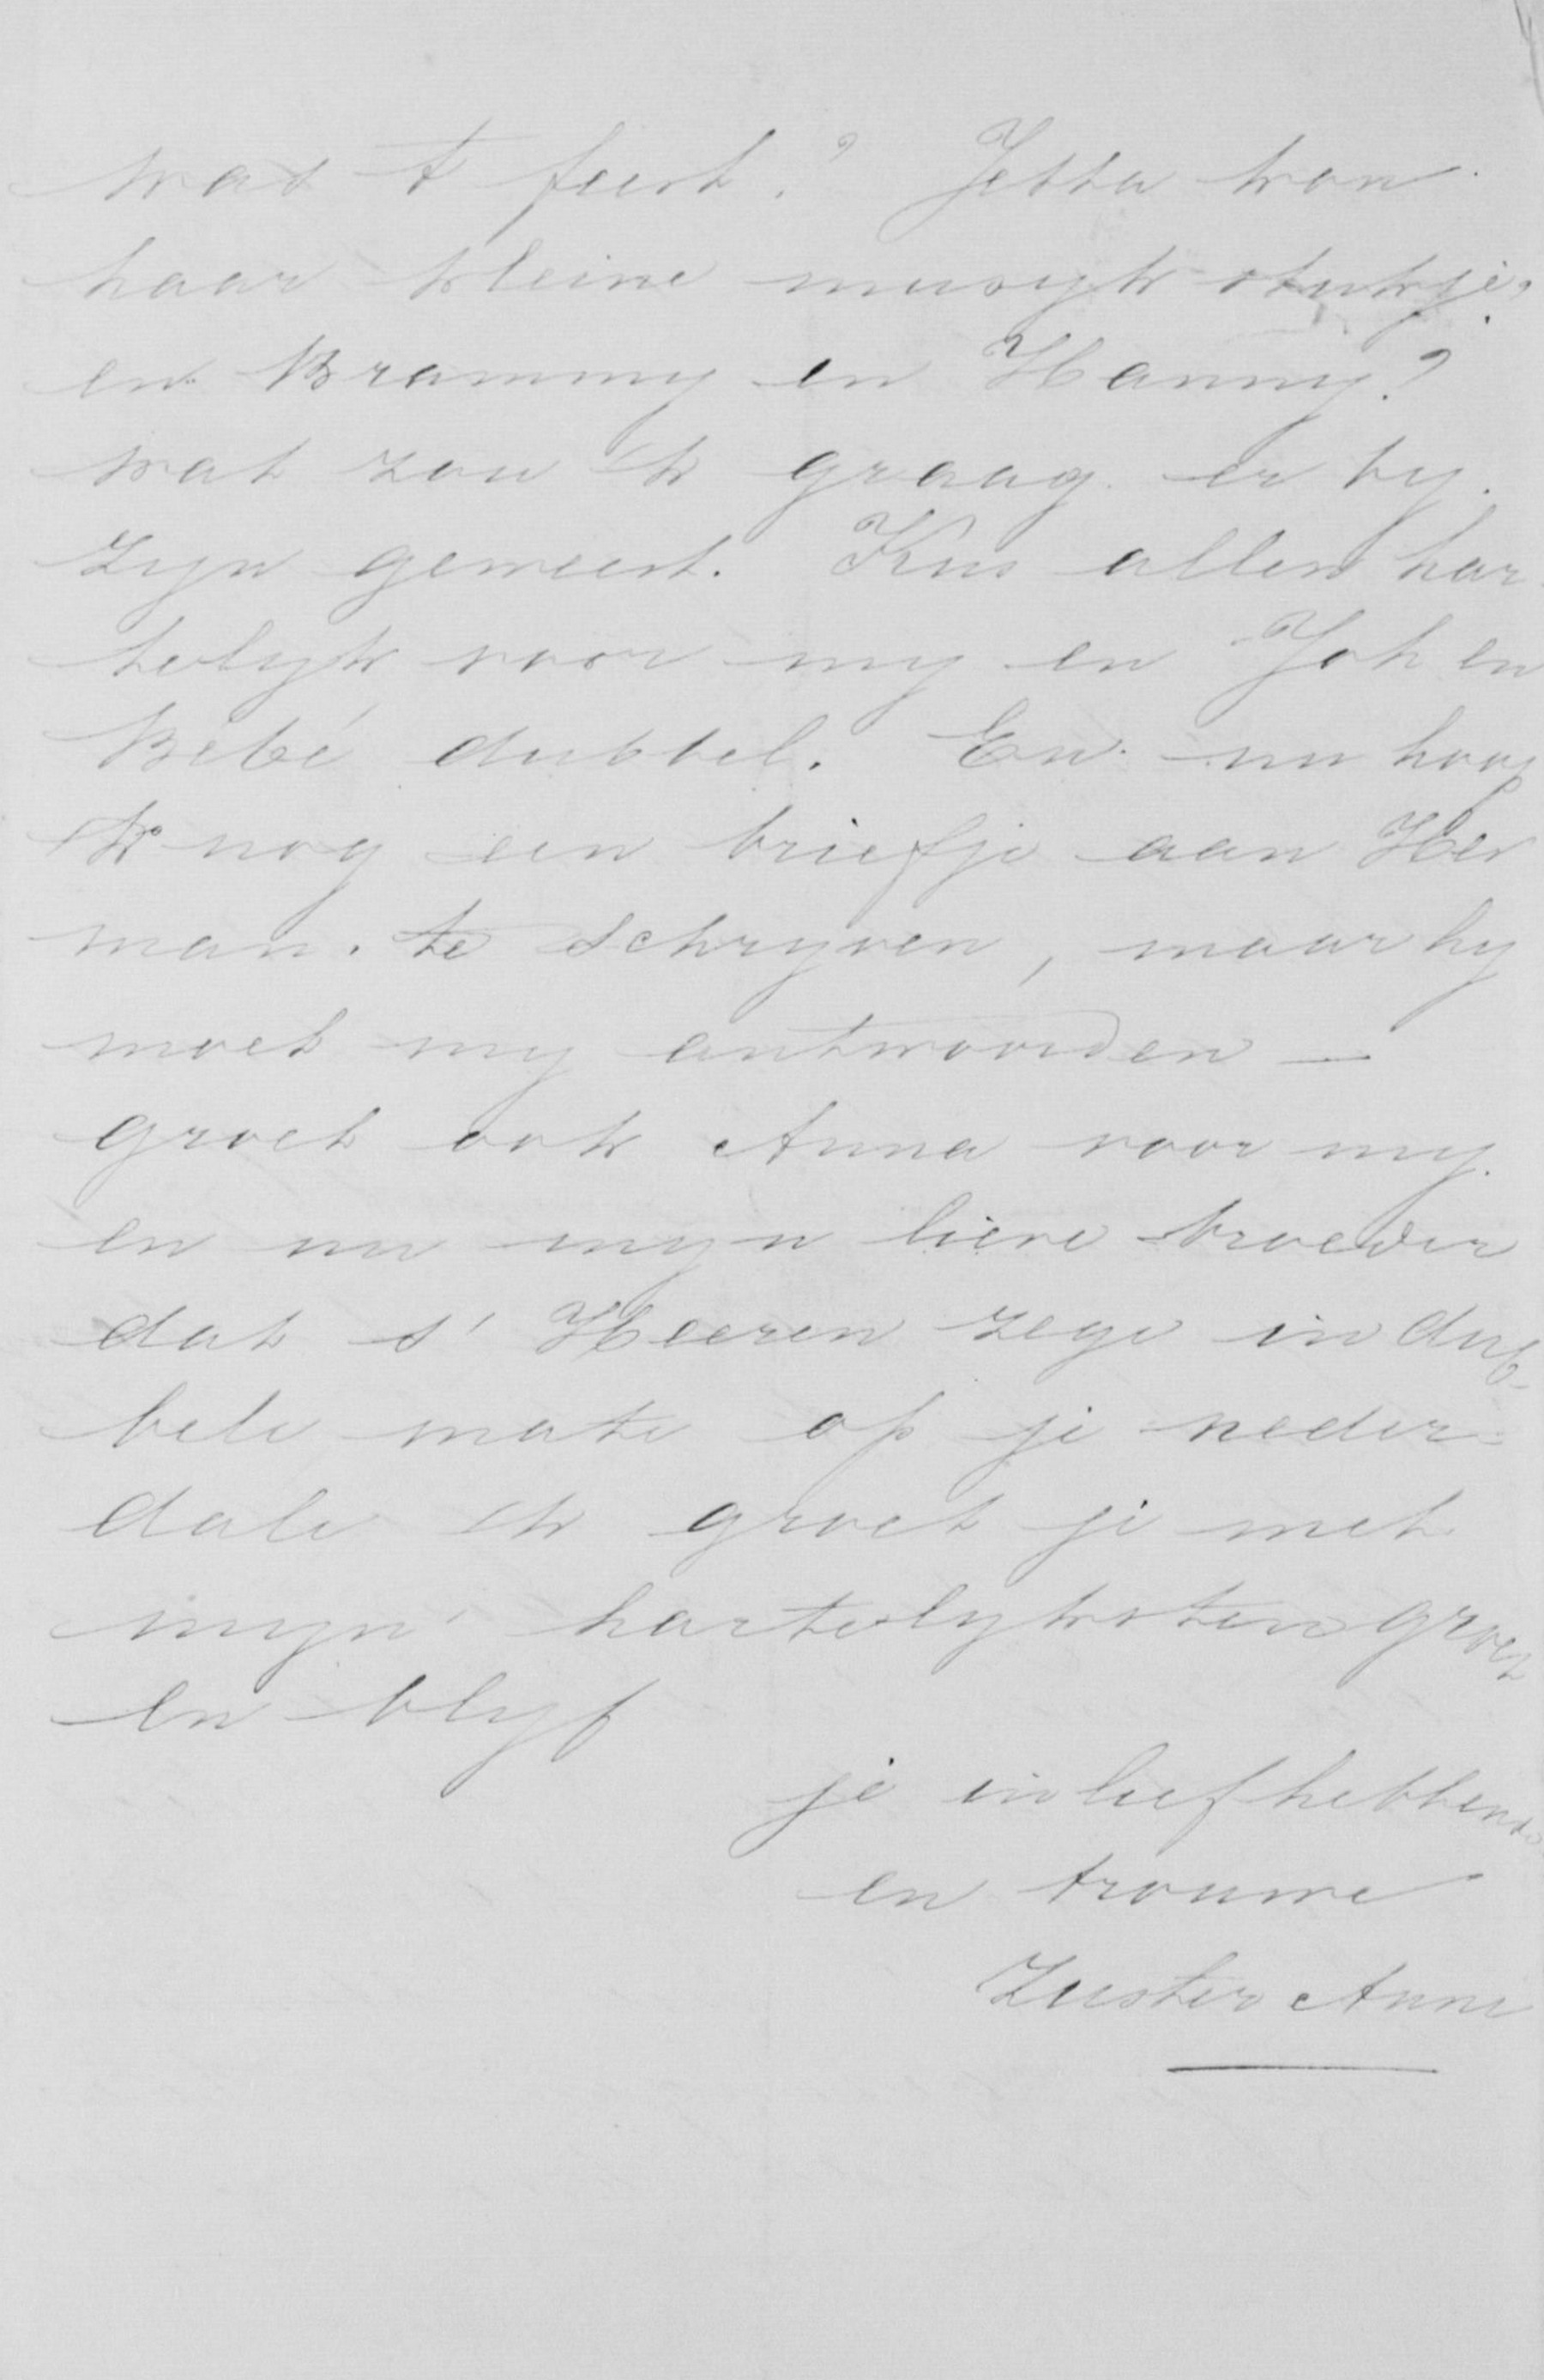 was t feest? Jetta kon
haar kleine muzyk stukje,
en Brammy en Hanny?
wat zou ik graag er by
zyn geweest. Kus allen har
telyk voor my en Joh en
Bébé dubbel. En nu hoop
ik nog een briefje aan Her
man. te schryven, maar hy
moet my antwoorden —
groet ook Anna voor my.
en nu myn lieve broeder
dat s' Heeren zege in dub-
bele mate op je neder-
dale ik groet je met
myn hartelyksten groet
en blyf
je in liefhebbende
en trouwe
Zuster Anne